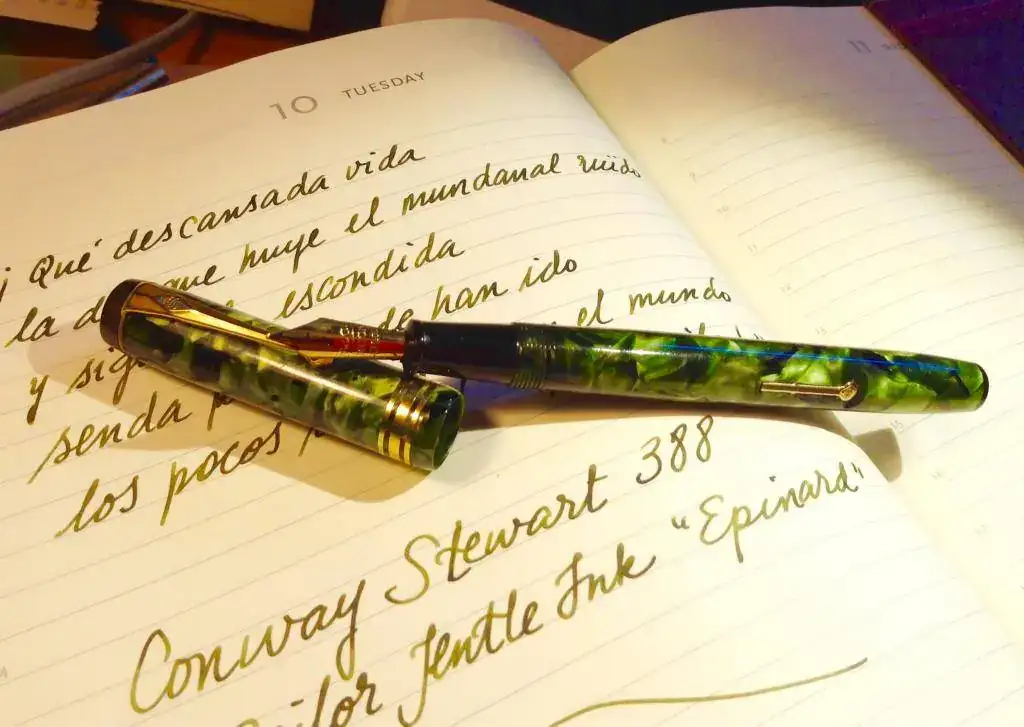 10 TUESDAY
11
¡Qué descansada vida
la que huye el mundanal ruïdo
y escondida
senda han ido
los pocos el mundo
Conway Stewart 388
Jentle Ink "Epinard"